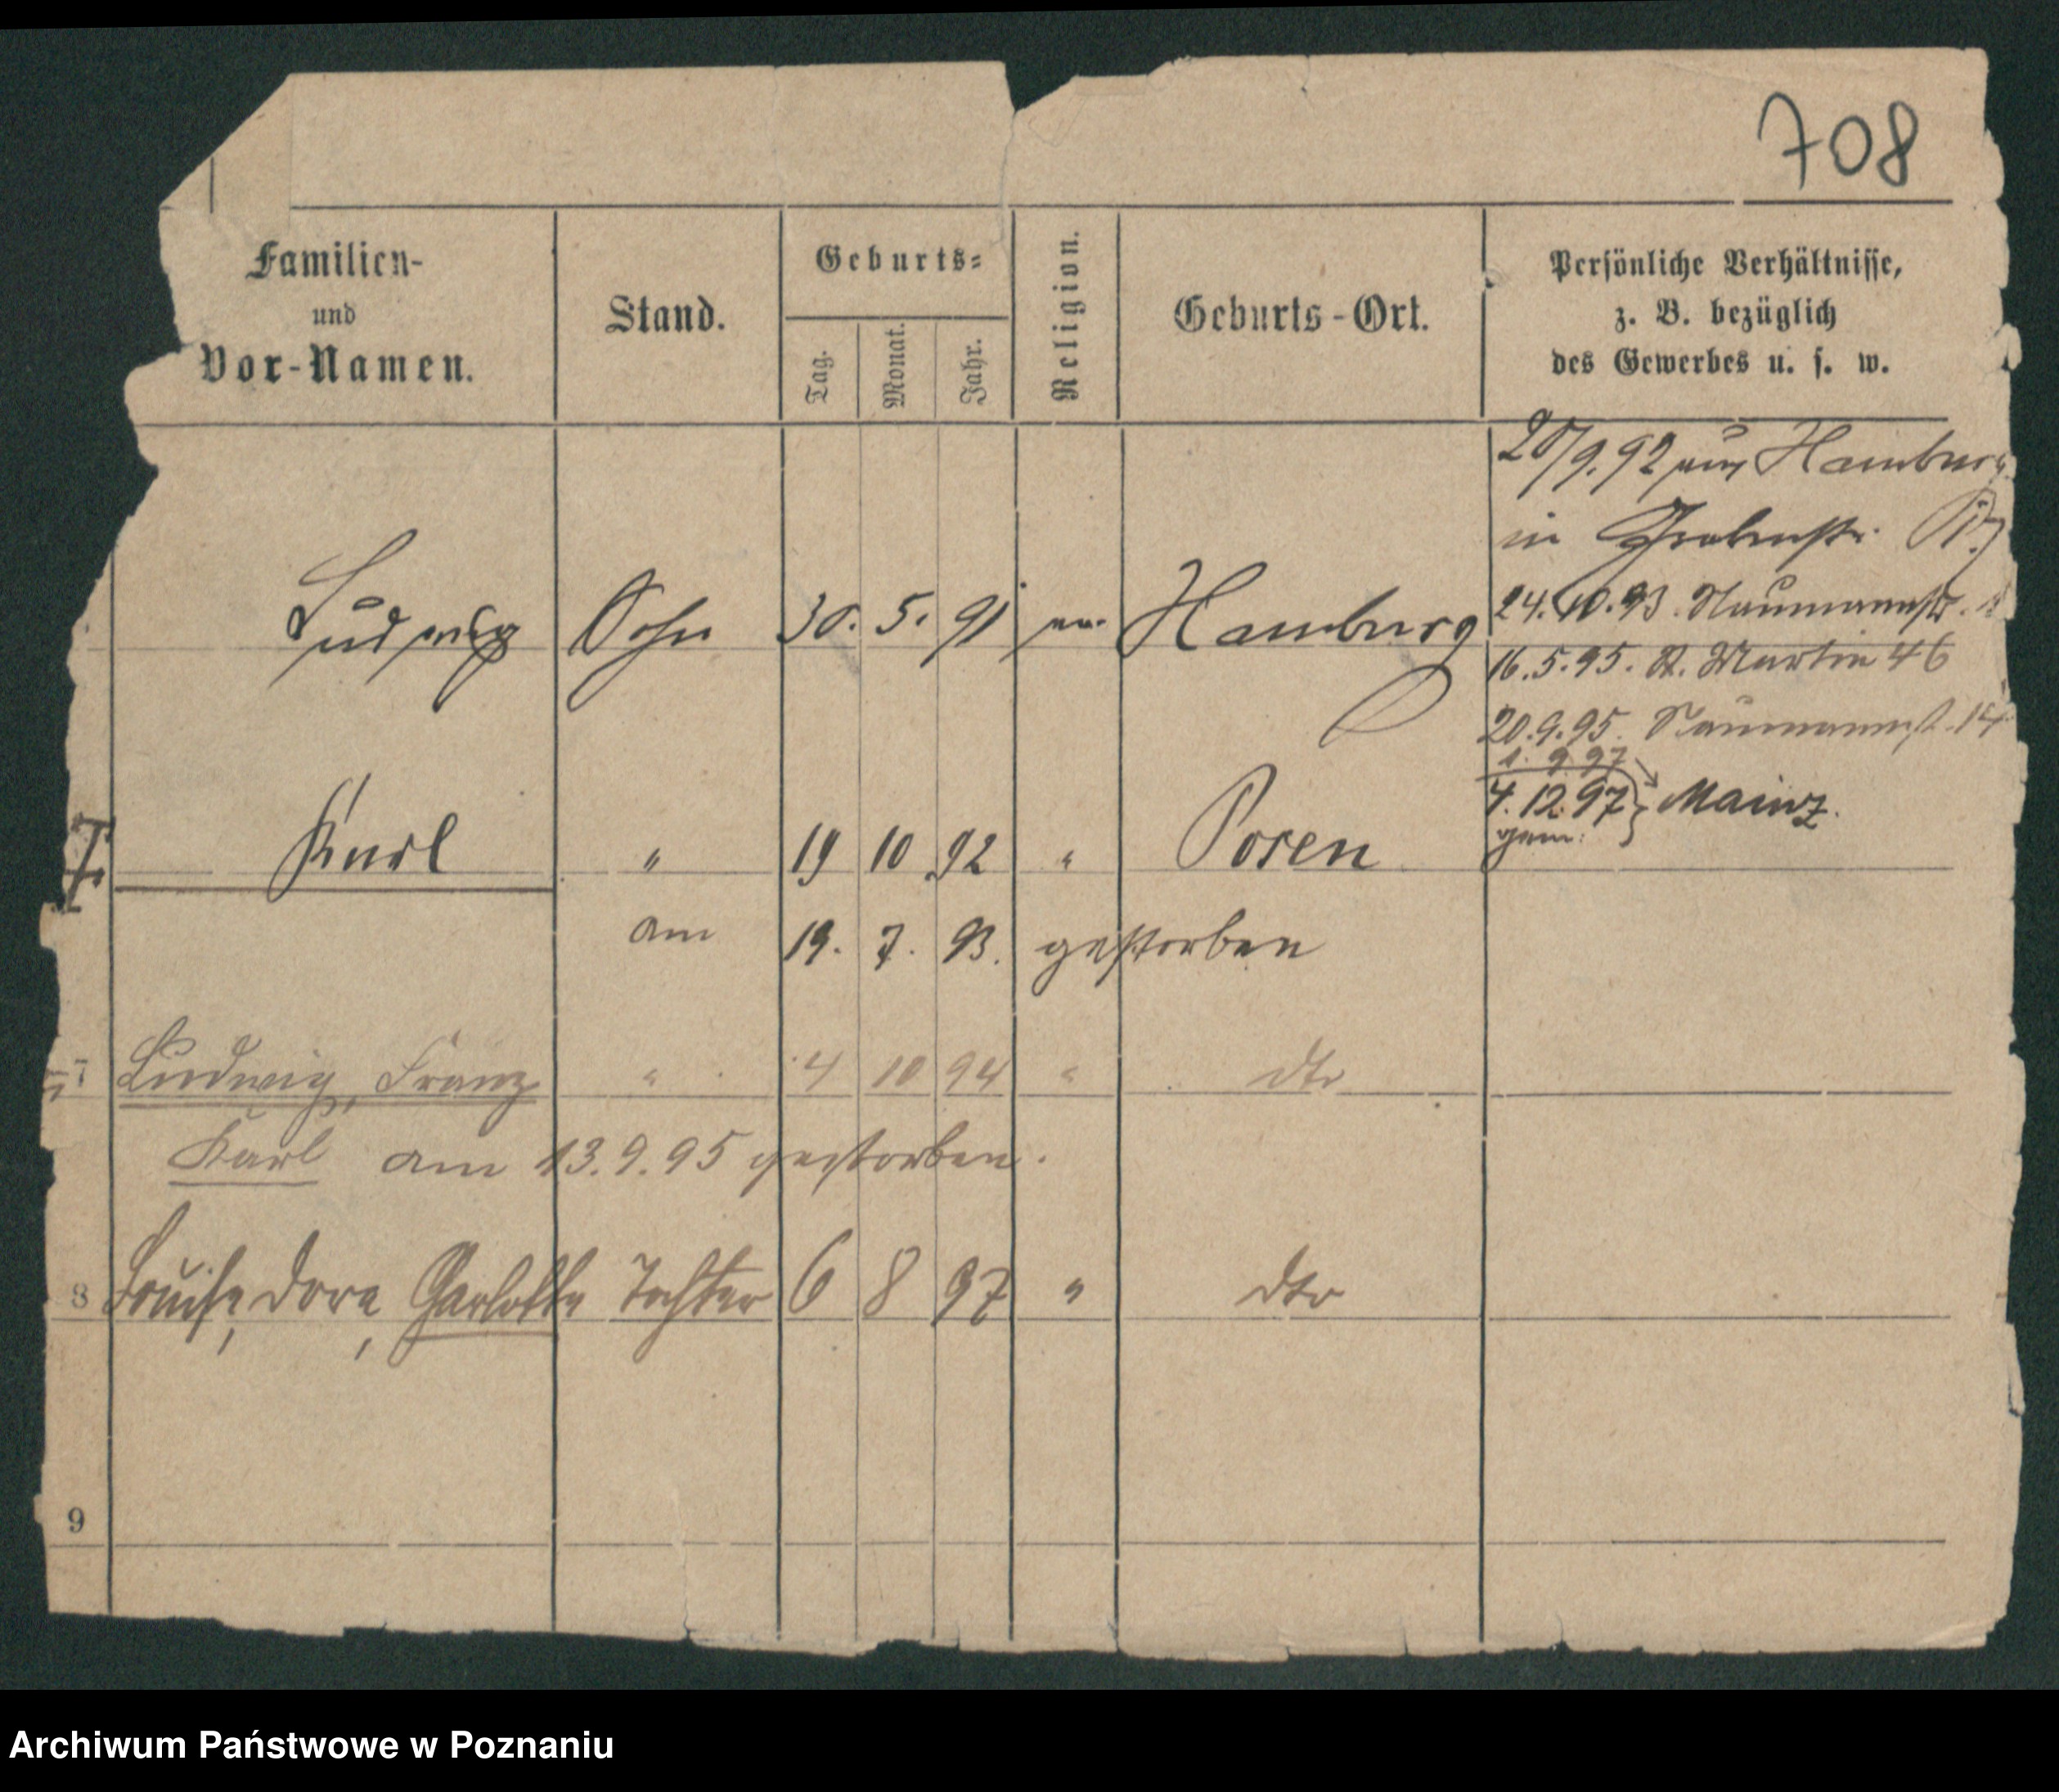 708
Familien-
und
Vor-Namen.
Stand.
Geburts-
Tag.
Monat.
Jahr.
Religion.
Geburts-Ort.
Persönliche Verhältnisse,
z. B. bezüglich
des Gewerbes u. s. w.
20/9.92 aus Hamburg
in Grabenstr.
24.10.93. Naumannstr.
Ludwig Sohn 30. 5. 91 ev. Hamburg
16.5.95. St. Martin 46
20.9.95. Naumannst. 14
1. 9 97
4.12.97 } Mainz.
gem:
Karl " 19 10 92 " Posen
am 19. 7. 93. gestorben
7 Ludwig, Franz " 4 10 94 " dto
Karl am 13.9.95 gestorben.
8 Louise, Dora, Charlotte Tochter 6 8 97 " dto
9
Archiwum Państwowe w Poznaniu